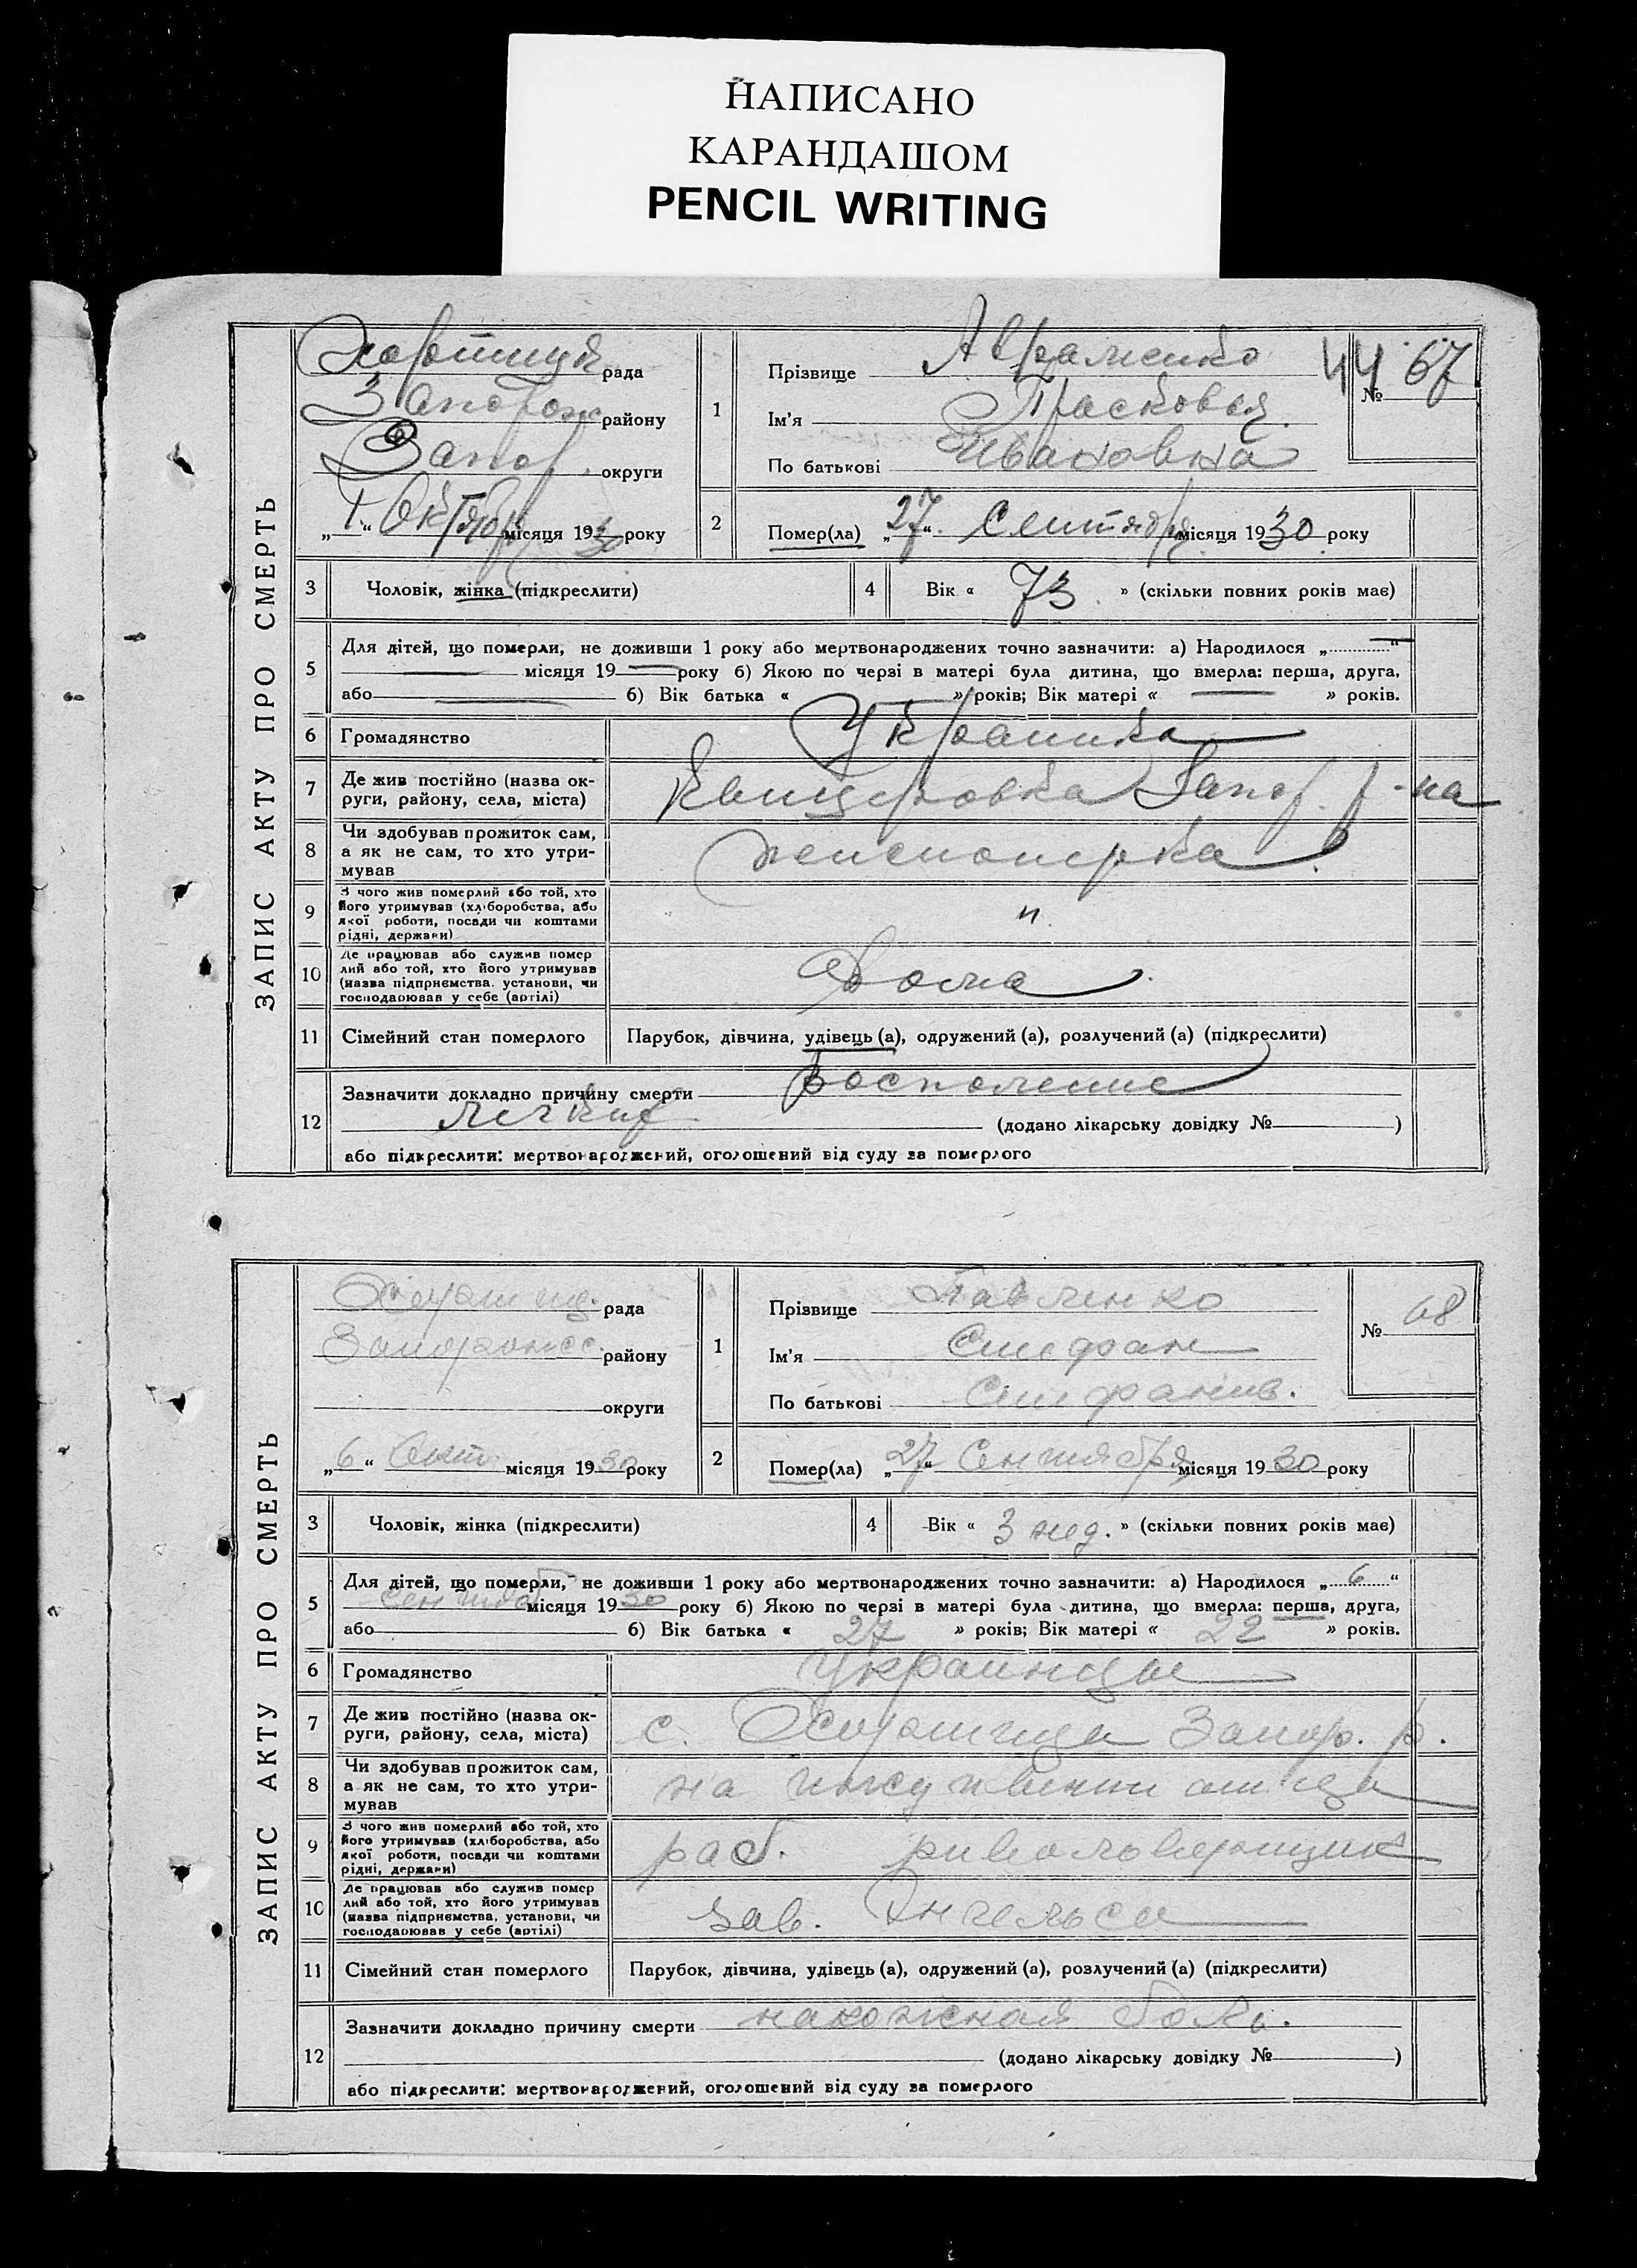 НАПИСАНО
КАРАНДАШОМ
PENCIL WRITING
ЗАПИС АКТУ ПРО СМЕРТЬ
Хортицк рада
Запорож району
Запор. округи
„1“ Октября місяця 1930 року
1 Прізвище Авраменко
Ім'я Прасковья
По батькові Ивановна
44 № 67
2 Помер(ла) „27“ Сентября місяця 1930 року
3 Чоловік, жінка (підкреслити)
4 Вік « 73 » (скільки повних років має)
5 Для дітей, що померли, не доживши 1 року або мертвонароджених точно зазначити: а) Народилося „—“
— місяця 19— року б) Якою по черзі в матері була дитина, що вмерла: перша, друга,
або — б) Вік батька « — » років; Вік матері « — » років.
6 Громадянство Украинка
7 Де жив постійно (назва ок-
руги, району, села, міста) Канцеровка Запор. р-на
8 Чи здобував прожиток сам,
а як не сам, то хто утри-
мував пенсионерка
9 З чого жив померлий або той, хто
його утримував (хліборобства, або
якої роботи, посади чи коштами
рідні, держави) "
10 Де працював або служив помер
лий або той, хто його утримував
(назва підприємства, установи, чи
господарював у себе (артілі) Дома
11 Сімейний стан померлого Парубок, дівчина, удівець (а), одружений (а), розлучений (а) (підкреслити)
12 Зазначити докладно причину смерти Воспаление
легких (додано лікарську довідку № )
або підкреслити: мертвонароджений, оголошений від суду за померлого
ЗАПИС АКТУ ПРО СМЕРТЬ
рада
Запорожск. району
округи
„6“ Окт. місяця 1930 року
1 Прізвище Павленко
Ім'я Стефан
По батькові Стефанив.
№ 68
2 Помер(ла) „27“ Сентября місяця 1930 року
3 Чоловік, жінка (підкреслити)
4 Вік « 3 нед. » (скільки повних років має)
5 Для дітей, що померли, не доживши 1 року або мертвонароджених точно зазначити: а) Народилося „6“
Сентяб місяця 1930 року б) Якою по черзі в матері була дитина, що вмерла: перша, друга,
або б) Вік батька « 27 » років; Вік матері « 22 » років.
6 Громадянство Украинцы
7 Де жив постійно (назва ок-
руги, району, села, міста) с. Запор. р.
8 Чи здобував прожиток сам,
а як не сам, то хто утри-
мував на иждивении отца
9 З чого жив померлий або той, хто
його утримував (хліборобства, або
якої роботи, посади чи коштами
рідні, держави) раб.
10 Де працював або служив помер
лий або той, хто його утримував
(назва підприємства, установи, чи
господарював у себе (артілі) зав. Енгельса
11 Сімейний стан померлого Парубок, дівчина, удівець (а), одружений (а), розлучений (а) (підкреслити)
12 Зазначити докладно причину смерти накожная боль.
(додано лікарську довідку № )
або підкреслити: мертвонароджений, оголошений від суду за померлого